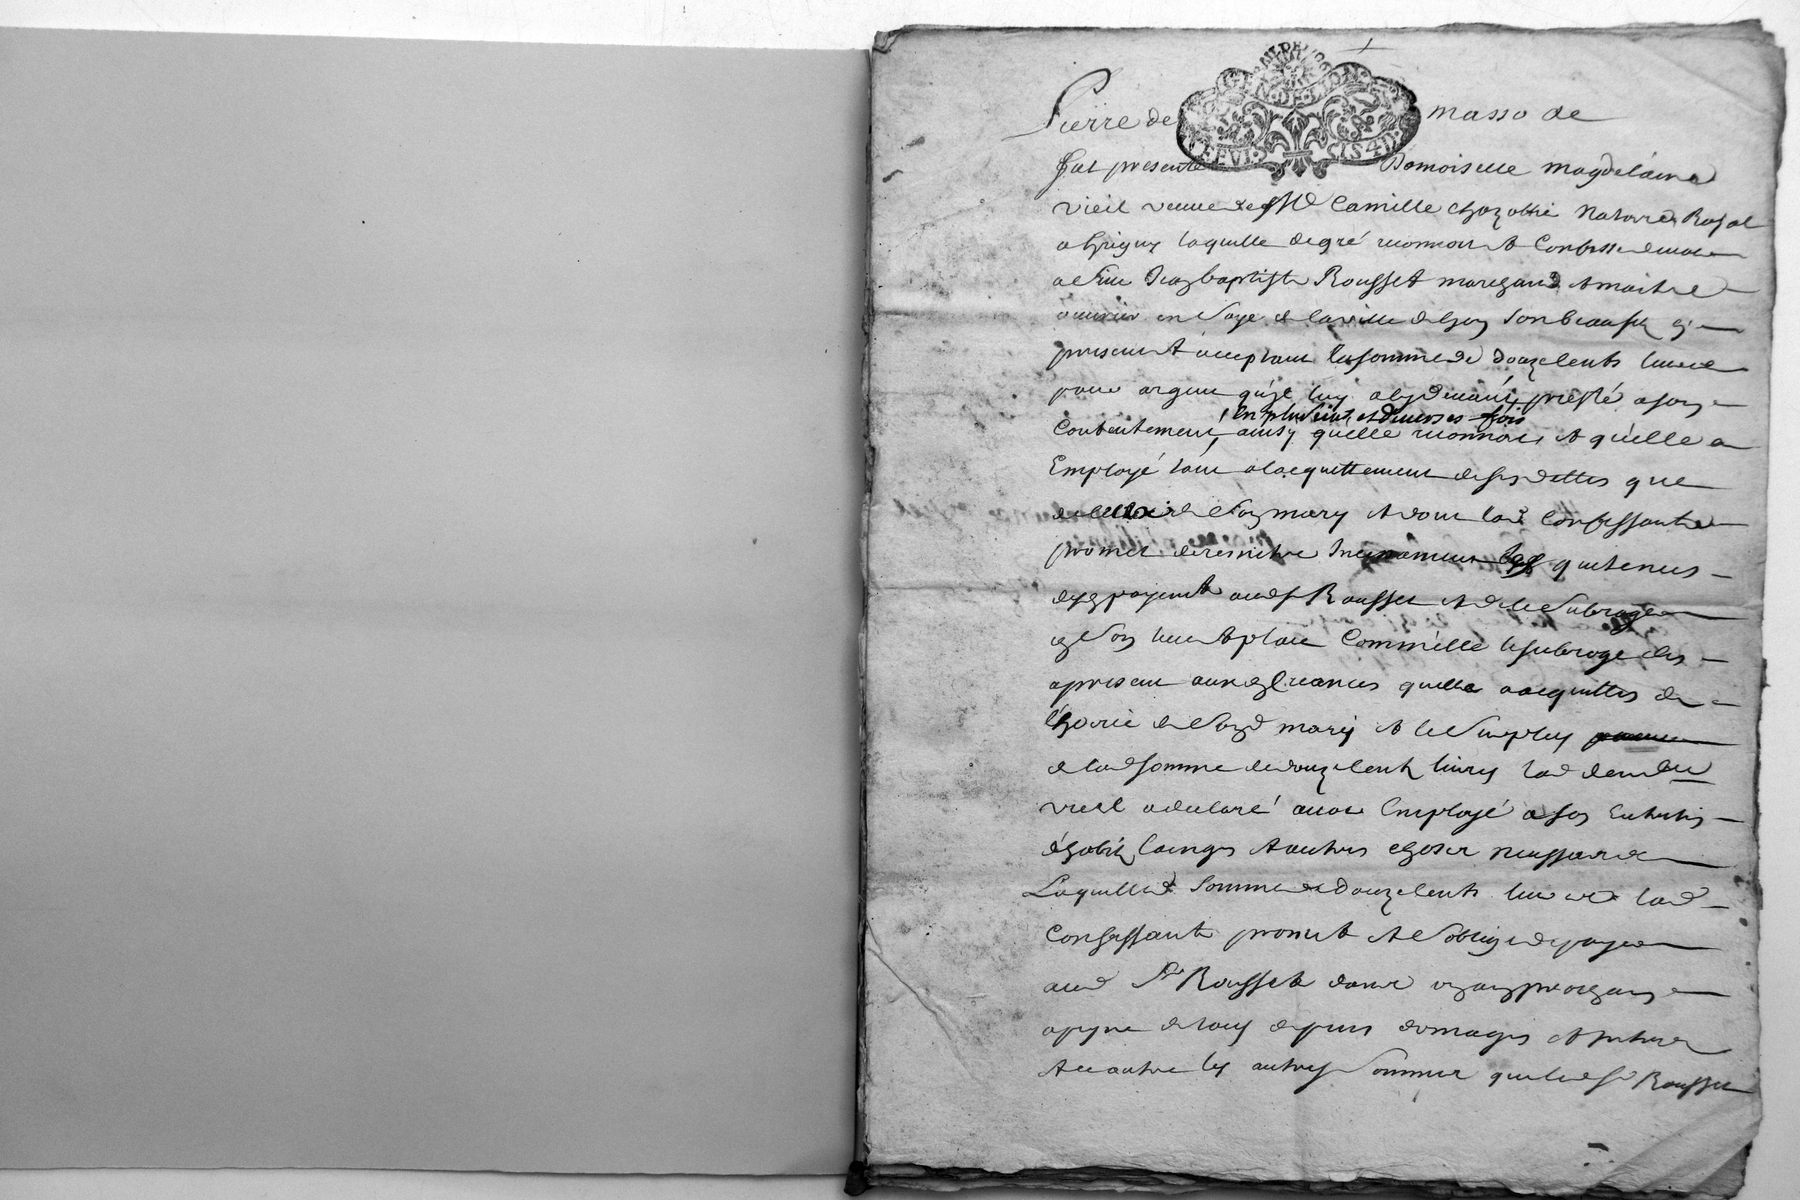 Pierre de masso de
fut presente Damoiselle magdelaine
vieil veuve de Me Camille Chazottie Notaire Royal
a Grigny laquelle de gré reconnoit et Confesse devoir
a Sieur Jean baptiste Rousset marchand et maitre
ouvrier en Soye de la ville de Lyon Son beaufils
present et acceptant la somme de douze Cents livres
pour argent qu'il luy a cydevant presté a son
en plusieurs et diverses fois
Contentement ainsy quelle reconnoit et qu'elle a
Employé tant a lacquittement de ses dettes que
de celles de Son mary et dont lad Confessante
promet de remettre les quitences
desd payemts aud Sr Rousset et de le Subroger
en Son lieu et place Comm'elle le subroge des
apresent aux creances quelle a acquittes de
l'hoirie de Sond mary et le Surplus
de lad somme de douze Cents livres lad dem.lle
vieil a declaré avoir Employé a son Entretien
d'habits linges et autres choses necessaires
Laquelle d Somme de douze Cents livres lad
Confessante promet et S'oblige de payer
aud Sr Rousset dans un an prochain
a peyne de tous depens domages et interets
et ce outre les autres Sommes que led Sr Rousset